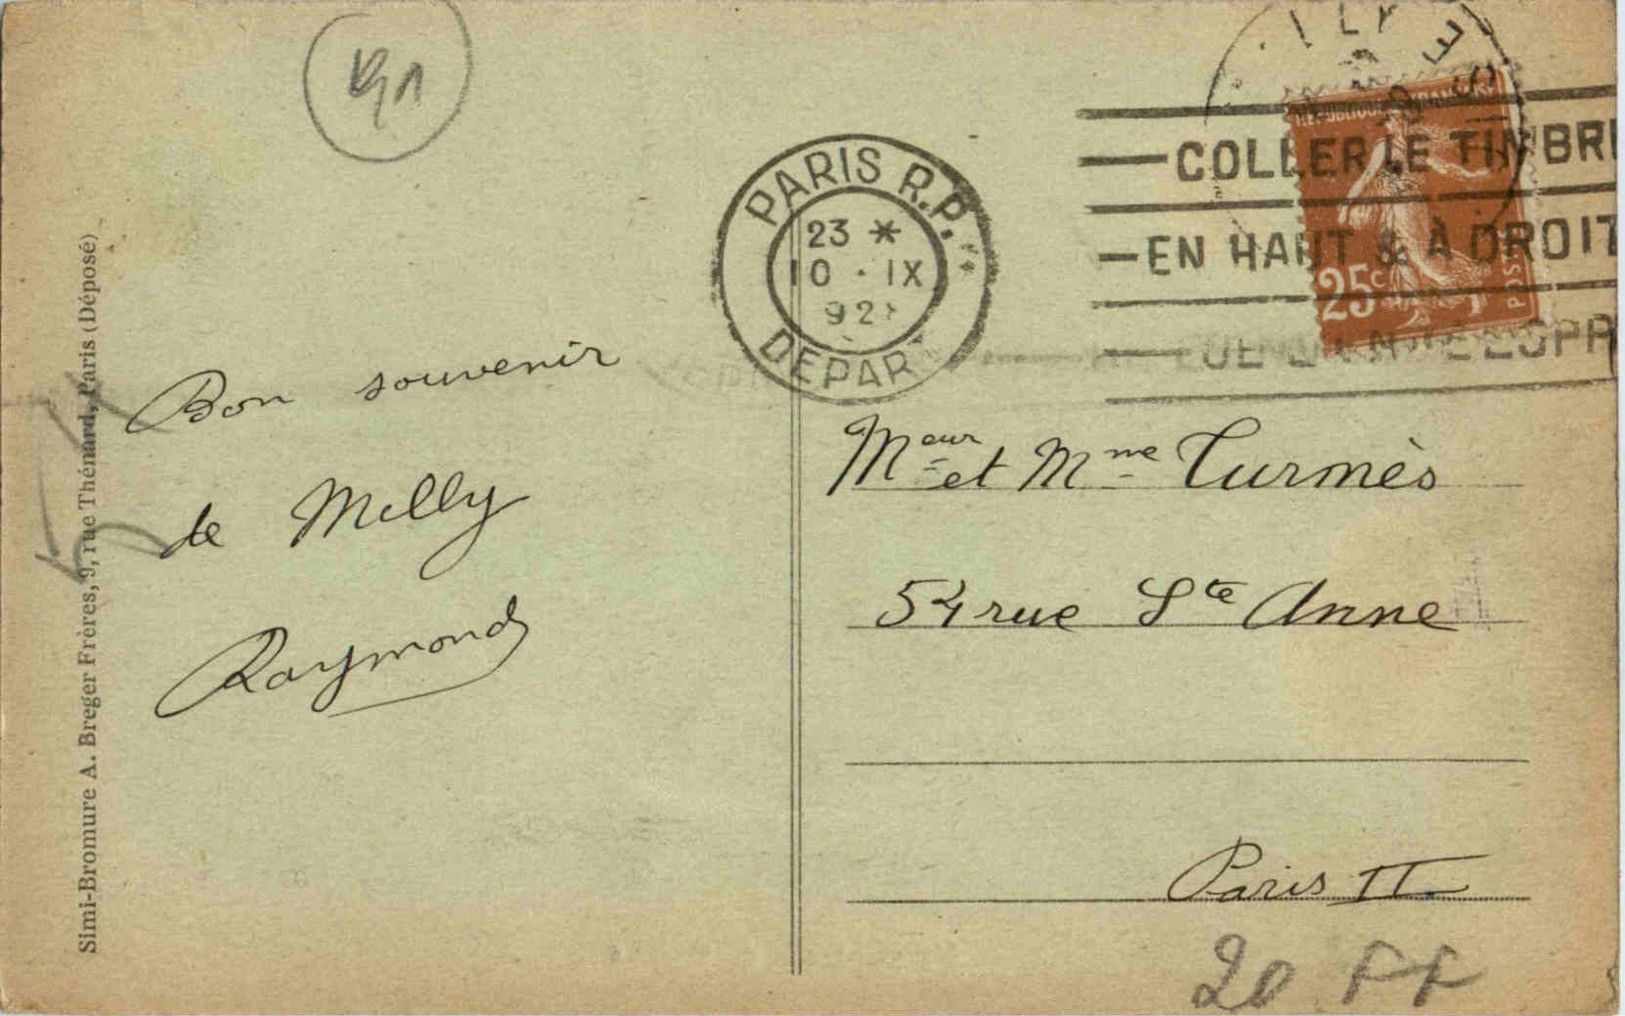 PARIS R.P.
23 *
10 · IX
DEPAR
COLLER LE TIMBRE
EN HAUT & A DROIT
25c
POSTES
Bon souvenir
de Milly
Raymond
Meur et Mme Turmès
54 rue Ste Anne
Paris II
20 FF
Simi-Bromure A. Breger Frères, 9, rue Thénard, Paris (Déposé)